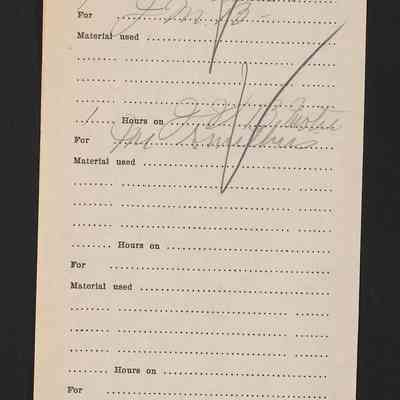 For J M B
Material used
1 Hours on
For Mr Smithers
Material used
Hours on
For
Material used
Hours on
For